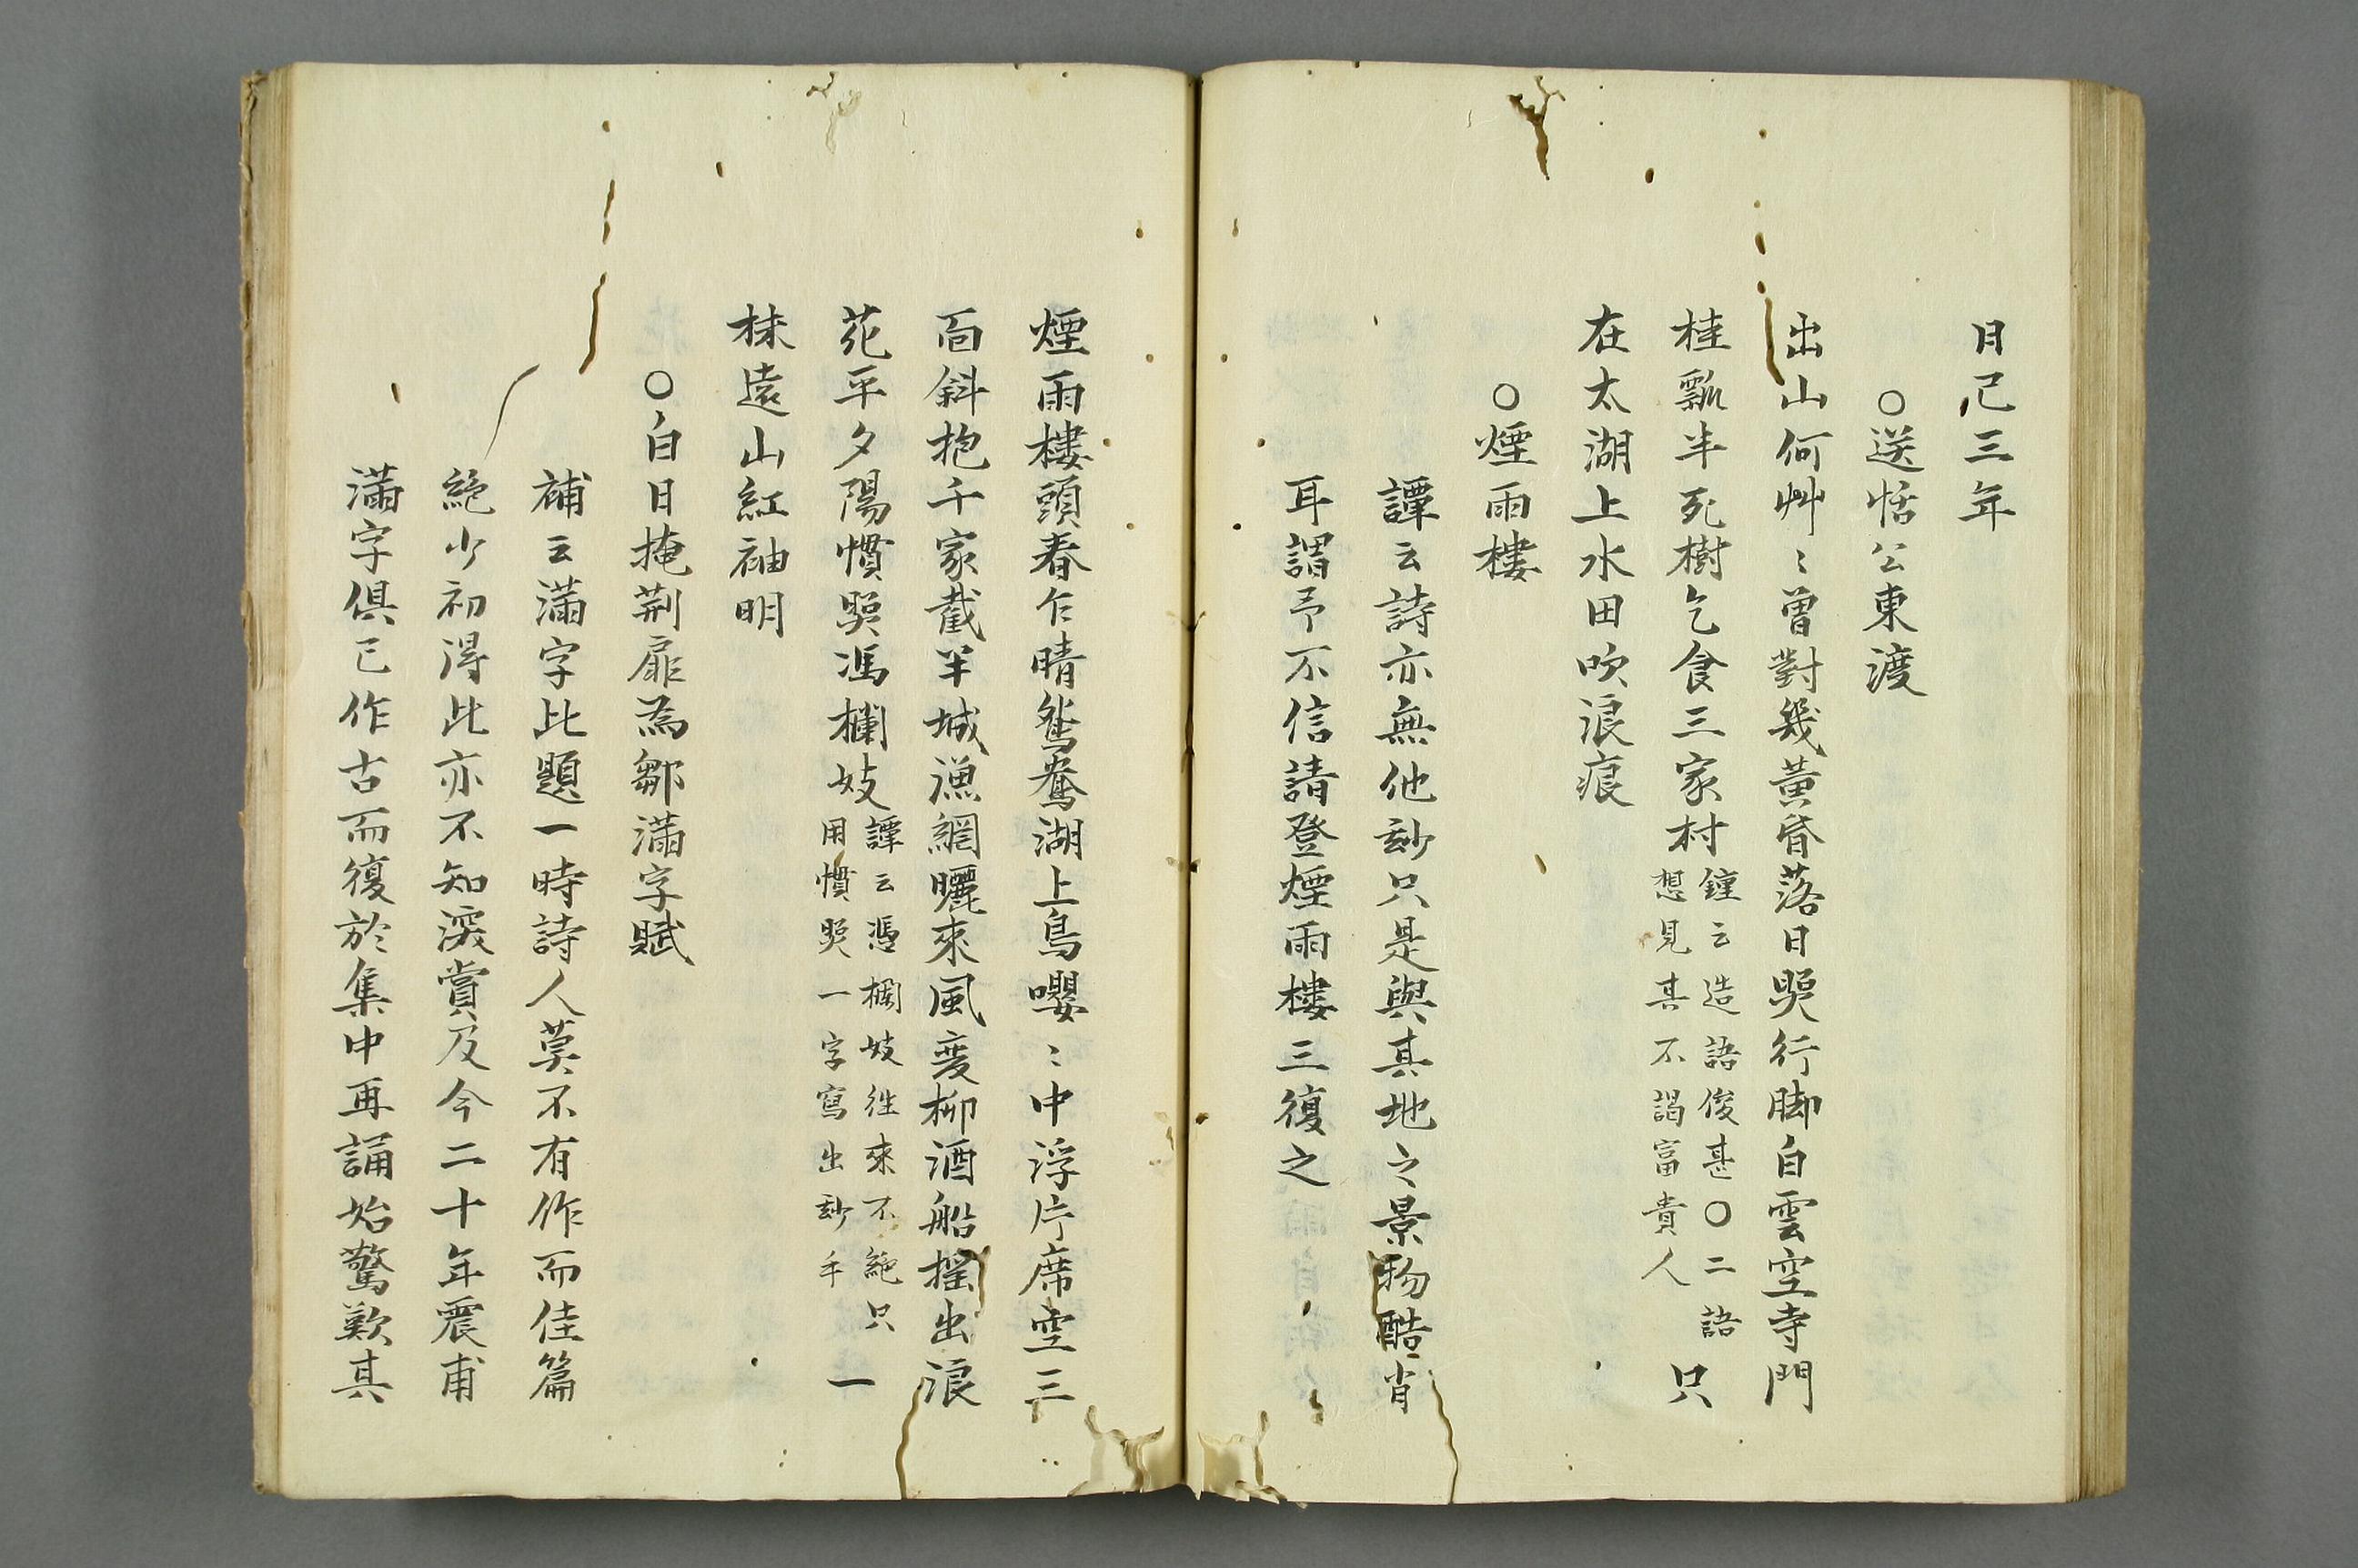 月已三年
○送恬公東渡
出山何艸〻曾對幾黃昏落日照行脚白雲空寺門
桂瓢半死樹乞食三家村鍾云造語俊甚○二語想見其不謁富貴人只
在太湖上水田吹浪痕
○煙雨樓
譚云詩亦無他玅只是與其地之景物酷肖
耳謂予不信請登煙雨樓三復之
煙雨樓頭春乍晴鴛鴦湖上鳥嚶〻中浮片席空三
面斜抱千家截半城漁網曬來風變柳酒船搖出浪
花平夕陽慣照馮欄妓譚云憑欄妓往來不絕只用慣照一字寫出玅手一
抹遠山紅袖明
○白日掩荆扉為鄒滿字賦
補云滿字此題一時詩人莫不有作而佳篇
絕少初得此亦不知深賞及今二十年震甫
滿字俱已作古而復於集中再誦始驚歎其